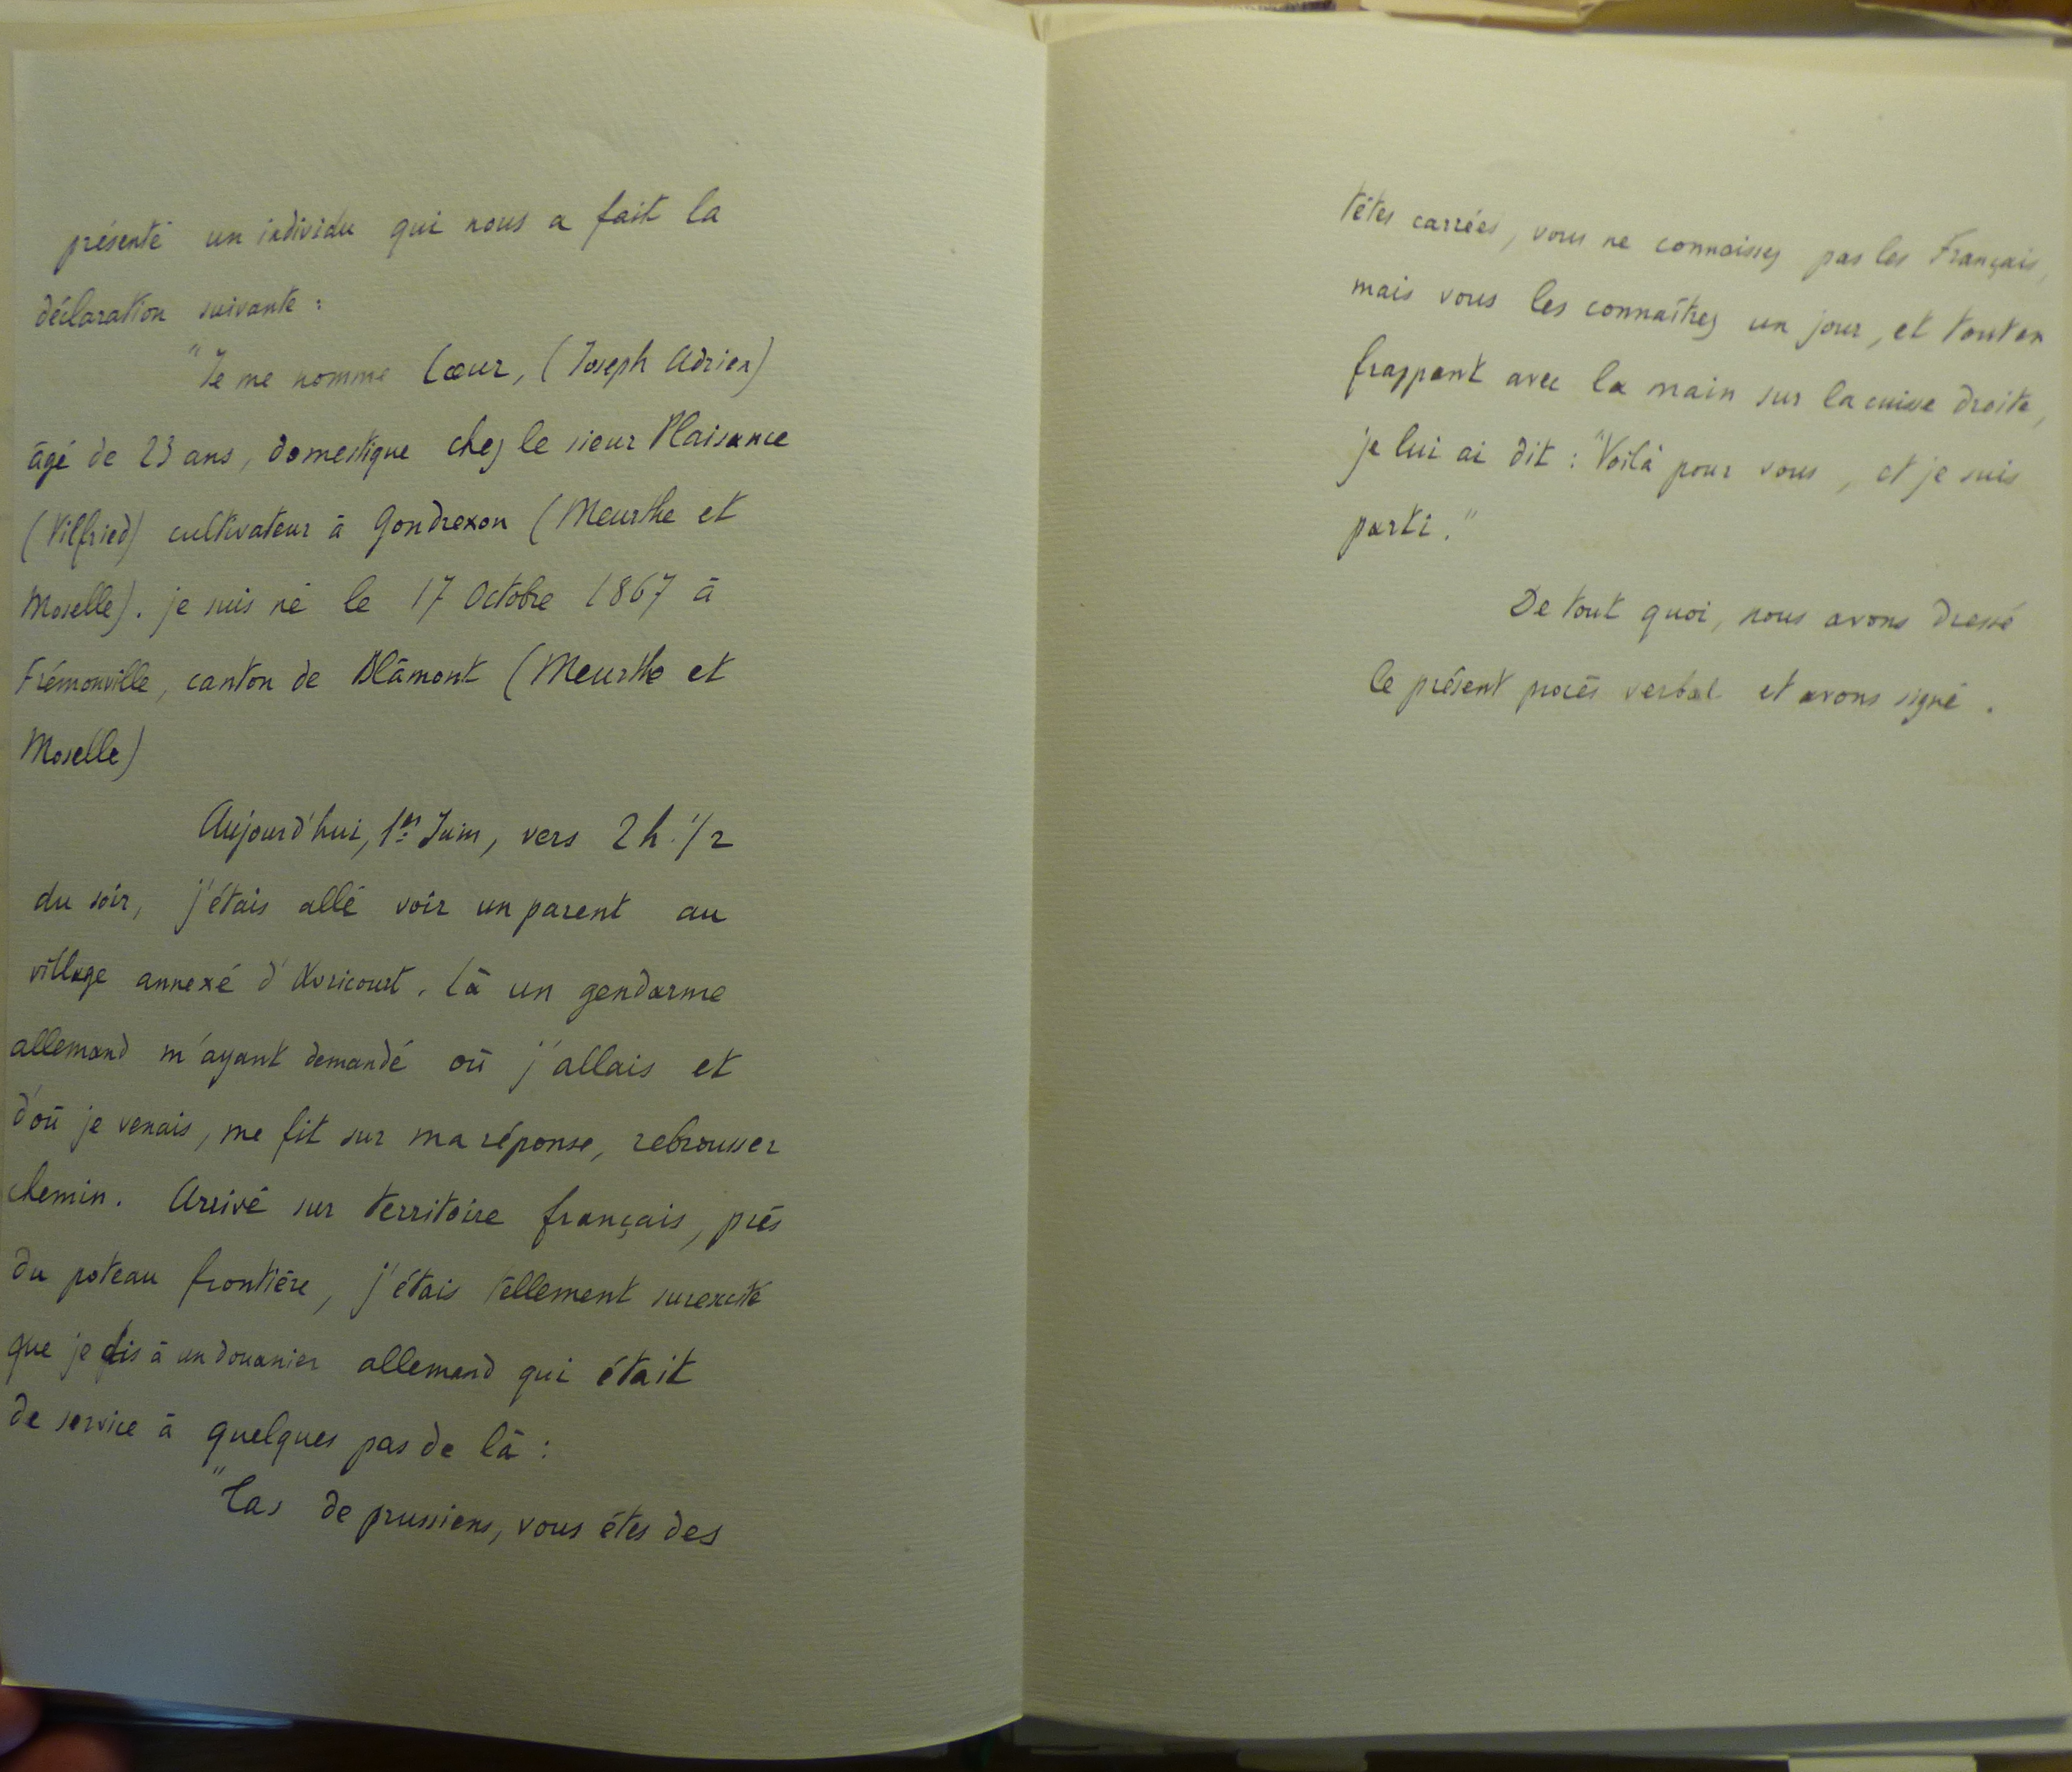 présenté un individu qui nous a fait la
déclaration suivante :
"Je me nomme Cœur, (Joseph Adrien)
âgé de 23 ans, domestique chez le sieur Plaisance
(Vilfried) cultivateur à Gondrexon (Meurthe et
Moselle). je suis né le 17 Octobre 1867 à
Frémonville, canton de Blâmont (Meurthe et
Moselle)
Aujourd'hui, 1er Juin, vers 2 h. 1/2
du soir, j'étais allé voir un parent au
village annexé d'Avricourt. Là un gendarme
allemand m'ayant demandé où j'allais et
d'où je venais, me fit sur ma réponse, rebrousser
chemin. Arrivé sur territoire français, près
du poteau frontière, j'étais tellement surexcité
que je dis à un douanier allemand qui était
de service à quelques pas de là :
"Tas de prussiens, vous êtes des
têtes carrées, vous ne connaissez pas les Français,
mais vous les connaîtrez un jour, et tout en
frappant avec la main sur la cuisse droite,
je lui ai dit : "Voilà pour vous, et je suis
parti."
De tout quoi, nous avons dressé
le présent procès verbal et avons signé.